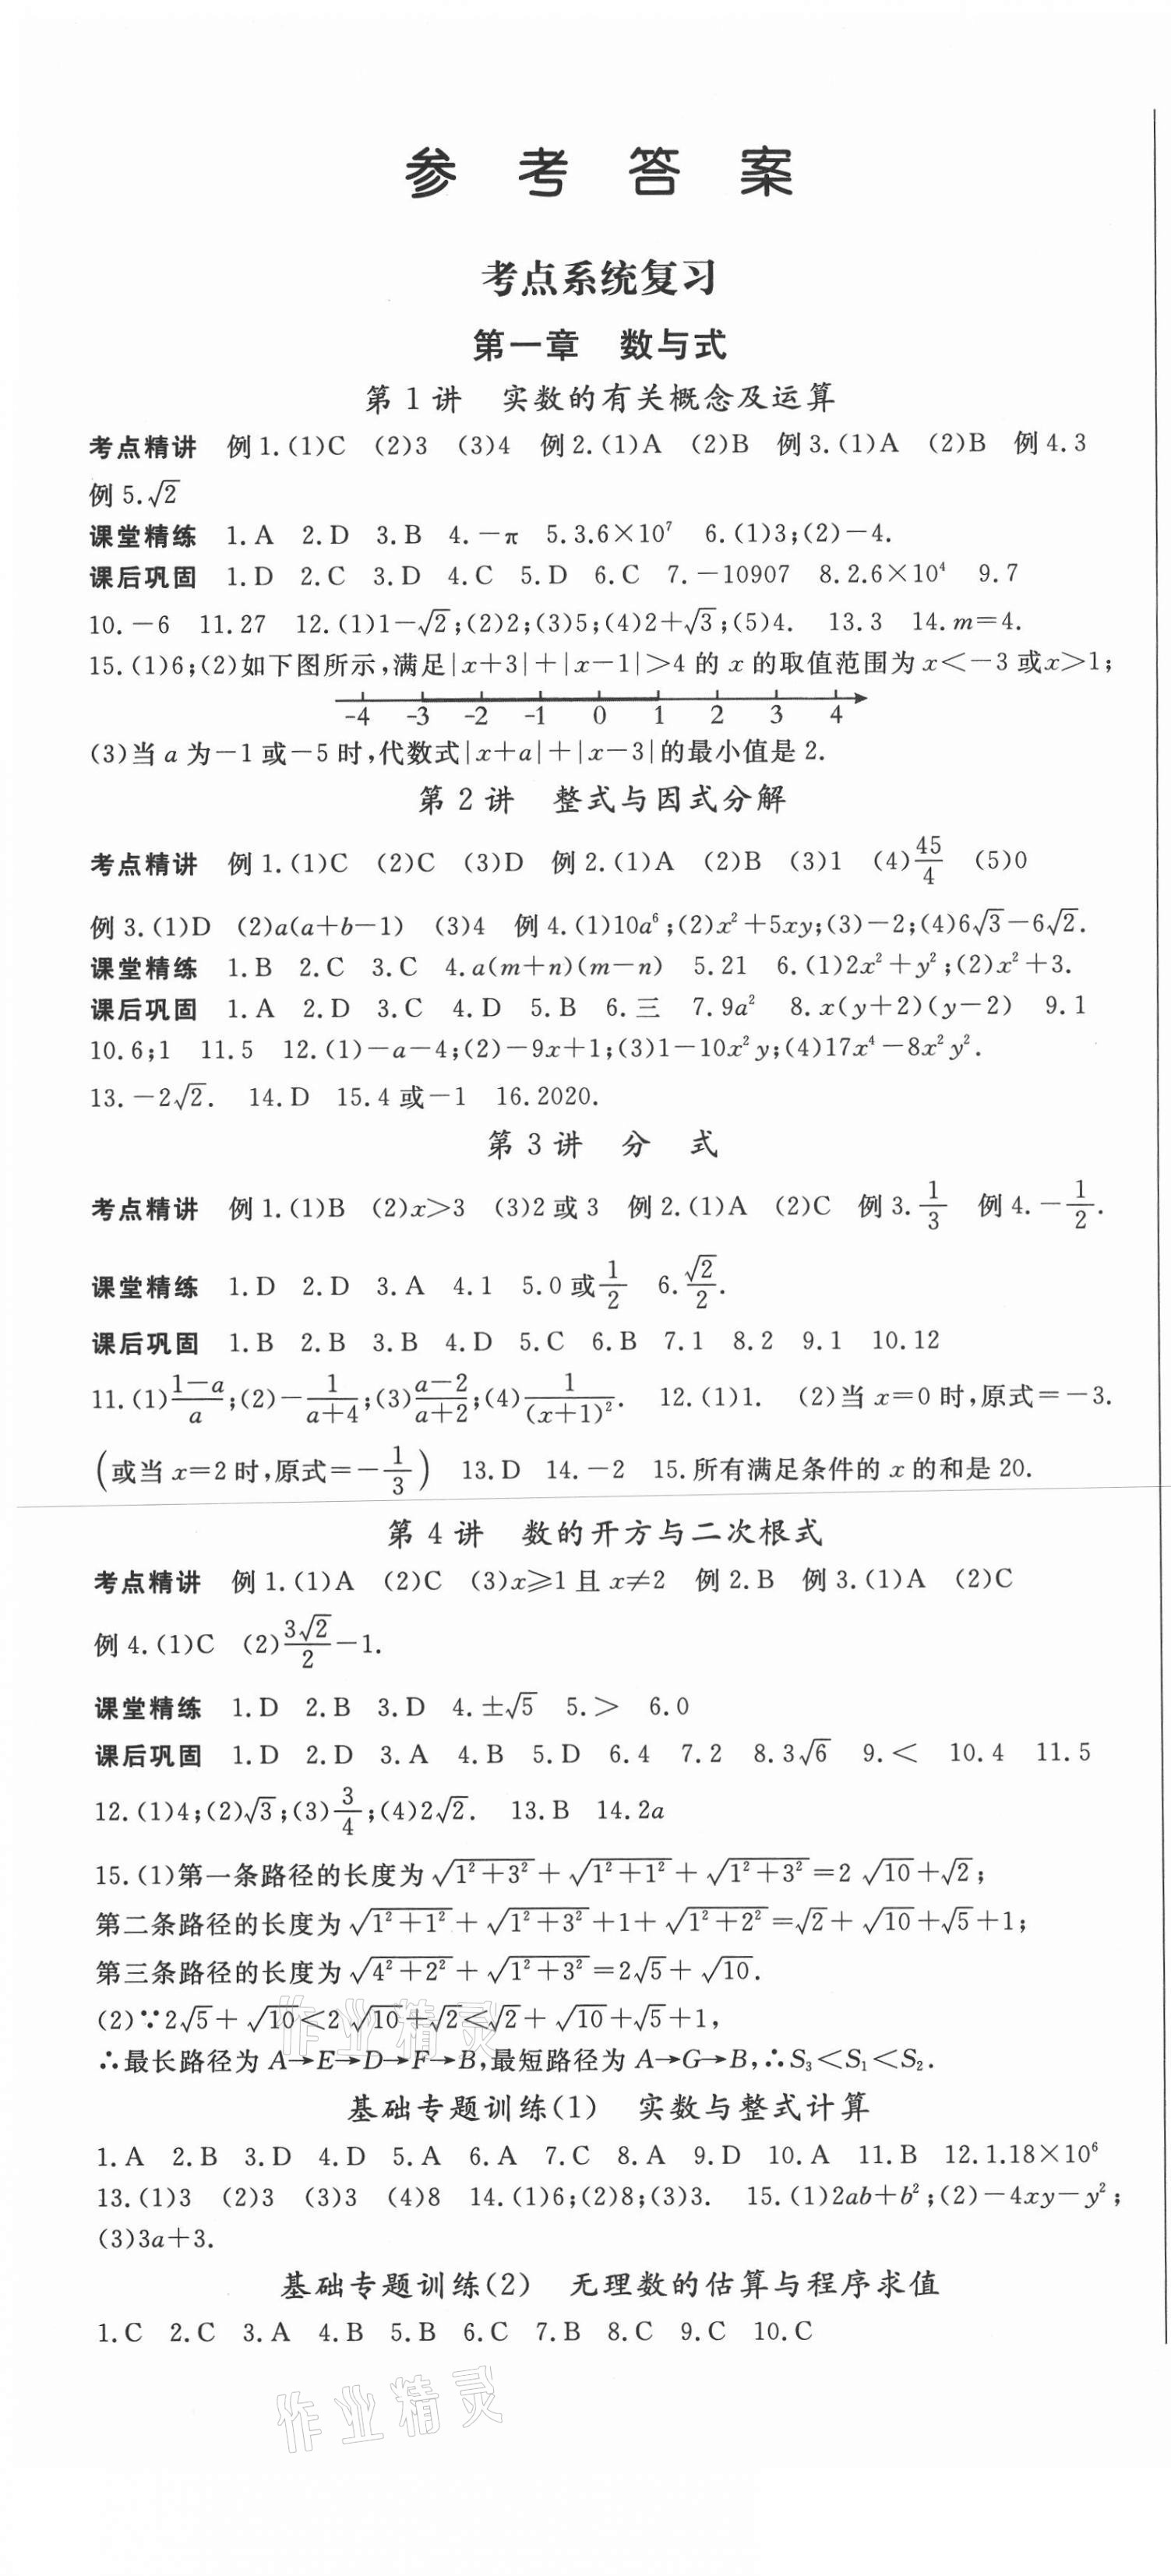 参 考 答 案
考点系统复习
第一章 数与式
第 1 讲 实数的有关概念及运算
考点精讲 例 1.(1)C (2)3 (3)4 例 2.(1)A (2)B 例 3.(1)A (2)B 例 4.3
例 5.√2
课堂精练 1.A 2.D 3.B 4.－π 5.3.6×10⁷ 6.(1)3;(2)－4.
课后巩固 1.D 2.C 3.D 4.C 5.D 6.C 7.－10907 8.2.6×10⁴ 9.7
10.－6 11.27 12.(1)1－√2;(2)2;(3)5;(4)2＋√3;(5)4. 13.3 14.m＝4.
15.(1)6;(2)如下图所示,满足|x＋3|＋|x－1|＞4 的 x 的取值范围为 x＜－3 或x＞1;
-4 -3 -2 -1 0 1 2 3 4
(3)当 a 为－1 或－5 时,代数式|x＋a|＋|x－3|的最小值是 2.
第 2 讲 整式与因式分解
考点精讲 例 1.(1)C (2)C (3)D 例 2.(1)A (2)B (3)1 (4)45/4 (5)0
例 3.(1)D (2)a(a＋b－1) (3)4 例 4.(1)10a⁶;(2)x²＋5xy;(3)－2;(4)6√3－6√2.
课堂精练 1.B 2.C 3.C 4.a(m＋n)(m－n) 5.21 6.(1)2x²＋y²;(2)x²＋3.
课后巩固 1.A 2.D 3.C 4.D 5.B 6.三 7.9a² 8.x(y＋2)(y－2) 9.1
10.6;1 11.5 12.(1)－a－4;(2)－9x＋1;(3)1－10x²y;(4)17x⁴－8x²y².
13.－2√2. 14.D 15.4 或－1 16.2020.
第 3 讲 分 式
考点精讲 例 1.(1)B (2)x＞3 (3)2 或 3 例 2.(1)A (2)C 例 3.1/3 例 4.－1/2.
课堂精练 1.D 2.D 3.A 4.1 5.0 或1/2 6.√2/2.
课后巩固 1.B 2.B 3.B 4.D 5.C 6.B 7.1 8.2 9.1 10.12
11.(1)(1－a)/a;(2)－1/(a＋4);(3)(a－2)/(a＋2);(4)1/(x＋1)². 12.(1)1. (2)当 x＝0 时,原式＝－3.
(或当 x＝2 时,原式＝－1/3) 13.D 14.－2 15.所有满足条件的 x 的和是 20.
第 4 讲 数的开方与二次根式
考点精讲 例 1.(1)A (2)C (3)x≥1 且 x≠2 例 2.B 例 3.(1)A (2)C
例 4.(1)C (2)3√2/2－1.
课堂精练 1.D 2.B 3.D 4.±√5 5.＞ 6.0
课后巩固 1.D 2.D 3.A 4.B 5.D 6.4 7.2 8.3√6 9.＜ 10.4 11.5
12.(1)4;(2)√3;(3)3/4;(4)2√2. 13.B 14.2a
15.(1)第一条路径的长度为√(1²＋3²)＋√(1²＋1²)＋√(1²＋3²)＝2√10＋√2;
第二条路径的长度为√(1²＋1²)＋√(1²＋3²)＋1＋√(1²＋2²)＝√2＋√10＋√5＋1;
第三条路径的长度为√(4²＋2²)＋√(1²＋3²)＝2√5＋√10.
(2)∵2√5＋√10＜2√10＋√2＜√2＋√10＋√5＋1,
∴最长路径为 A→E→D→F→B,最短路径为 A→G→B,∴S₃＜S₁＜S₂.
基础专题训练(1) 实数与整式计算
1.A 2.B 3.D 4.D 5.A 6.A 7.C 8.A 9.D 10.A 11.B 12.1.18×10⁶
13.(1)3 (2)3 (3)3 (4)8 14.(1)6;(2)8;(3)3. 15.(1)2ab＋b²;(2)－4xy－y²;
(3)3a＋3.
基础专题训练(2) 无理数的估算与程序求值
1.C 2.C 3.A 4.B 5.B 6.C 7.B 8.C 9.C 10.C
作业精灵
作业精灵